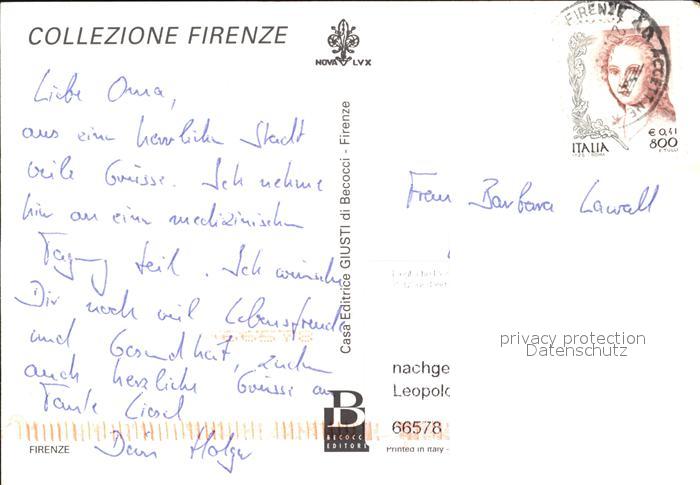 COLLEZIONE FIRENZE
NOVA LVX
FIRENZE
ITALIA
€ 0,41
800
Liebe Oma,
aus einer herrlichen Stadt
viele Grüsse. Ich nehme
hier an einer medizinischen
Tagung teil. Ich wünsche
Dir noch viel Lebensfreude
und Gesundheit, zudem
auch herzliche Grüsse an
Tante Liesel
Dein Holger
Frau Barbara Lawall
Casa Editrice GIUSTI di Becocci - Firenze
privacy protection
Datenschutz
nachge
Leopold
66578
B
BECOCCI
EDITORE
FIRENZE
Printed in Italy -